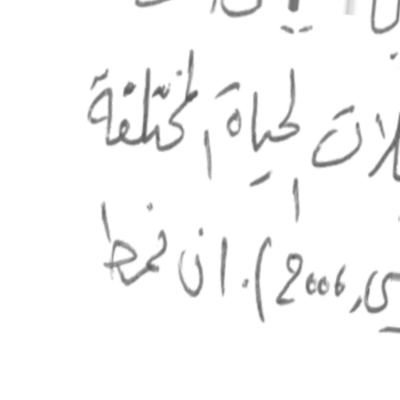 لات الحياة المختلفة
ى, 2006). ان نمط